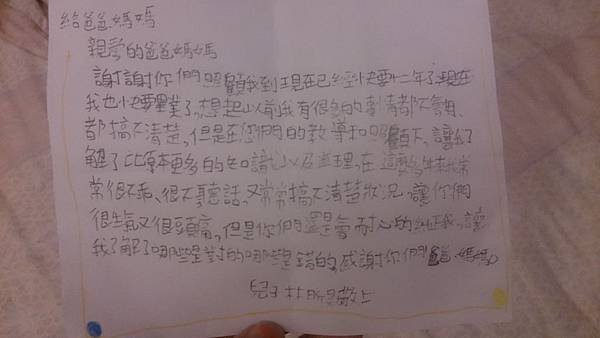 給爸爸媽媽
親愛的爸爸媽媽
謝謝你們照顧我到現在已經快要十二年了,現在
我也快要畢業了,想起以前我有很多的事情都不無,
都搞不清楚,但是在您們的教導和照顧下,讓我了
解了比原本更多的知識以及道理,在這麼多年我常
常很不乖、很不聽話,又常常搞不清楚狀況,讓你們
很生氣又很頭痛,但是你們還是會耐心的糾正我,讓
我了解了哪些是對的哪些是錯的,感謝你們爸爸媽媽。
兒子 敬上